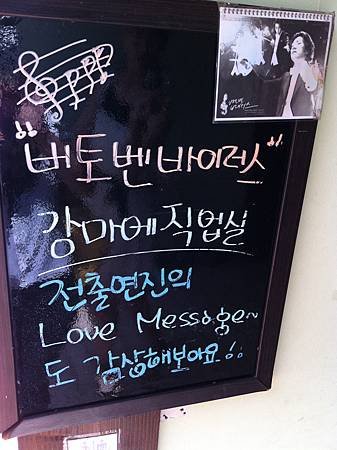 "베토벤바이러스"
강마에 직업실
전출연진의
Love Message~
도 감상해보아요!!
베토벤
바이러스